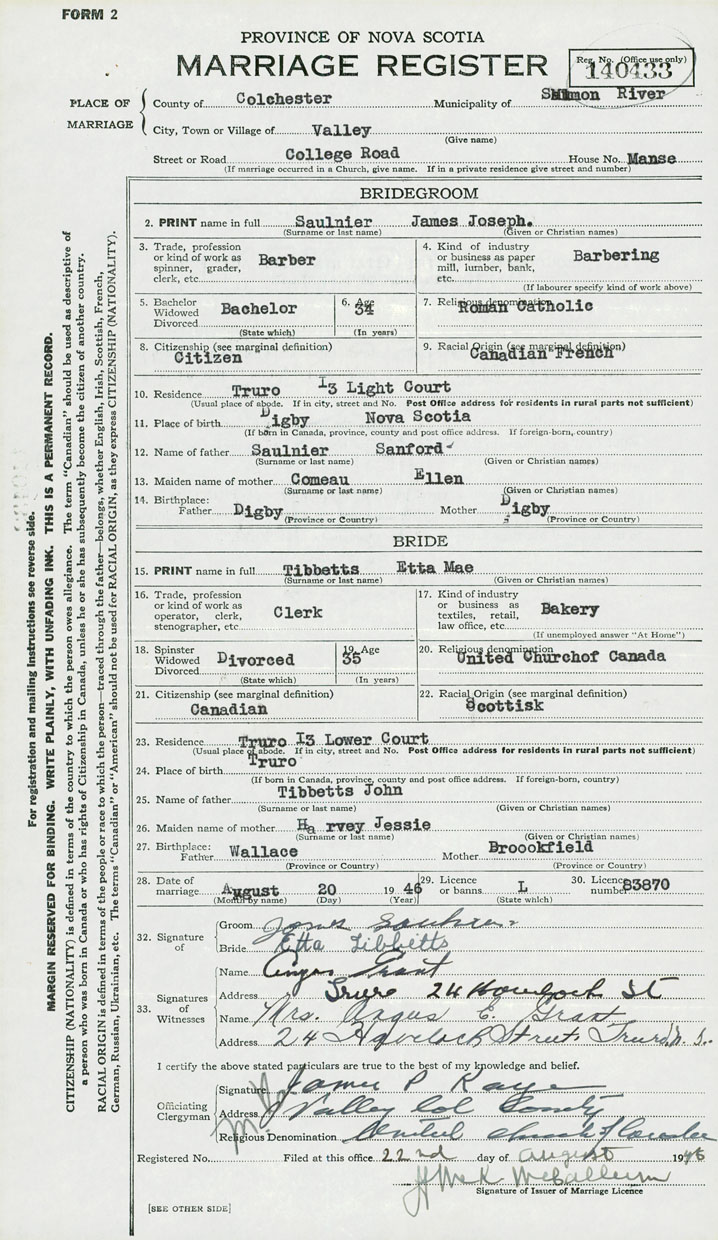 FORM 2
PROVINCE OF NOVA SCOTIA
MARRIAGE REGISTER
Reg. No. (Office use only)
140433
PLACE OF MARRIAGE
County of Colchester Municipality of River
City, Town or Village of Valley
(Give name)
Street or Road College Road House No. Manse
(If marriage occurred in a Church, give name. If in a private residence give street and number)
BRIDEGROOM
2. PRINT name in full Saulnier James Joseph.
(Surname or last name) (Given or Christian names)
3. Trade, profession or kind of work as spinner, grader, clerk, etc. Barber
4. Kind of industry or business as paper mill, lumber, bank, etc. Barbering
(If labourer specify kind of work above)
5. Bachelor Widowed Divorced Bachelor
(State which)
6. Age 34
(In years)
7. Religious denomination Roman Catholic
8. Citizenship (see marginal definition)
Citizen
9. Racial Origin (see marginal definition)
Canadian French
10. Residence Truro I3 Light Court
(Usual place of abode. If in city, street and No. Post Office address for residents in rural parts not sufficient)
11. Place of birth Digby Nova Scotia
(If born in Canada, province, county and post office address. If foreign-born, country)
12. Name of father Saulnier Sanford
(Surname or last name) (Given or Christian names)
13. Maiden name of mother Comeau Ellen
(Surname or last name) (Given or Christian names)
14. Birthplace:
Father Digby Mother Digby
(Province or Country) (Province or Country)
BRIDE
15. PRINT name in full Tibbetts Etta Mae
(Surname or last name) (Given or Christian names)
16. Trade, profession or kind of work as operator, clerk, stenographer, etc Clerk
17. Kind of industry or business as textiles, retail, law office, etc. Bakery
(If unemployed answer "At Home")
18. Spinster Widowed Divorced Divorced
(State which)
19. Age 35
(In years)
20. Religious denomination
United Churchof Canada
21. Citizenship (see marginal definition)
Canadian
22. Racial Origin (see marginal definition)
Scottisk
23. Residence Truro I3 Lower Court
(Usual place of abode. If in city, street and No. Post Office address for residents in rural parts not sufficient)
24. Place of birth Truro
(If born in Canada, province, county and post office address. If foreign-born, country)
25. Name of father Tibbetts John
(Surname or last name) (Given or Christian names)
26. Maiden name of mother Ha rvey Jessie
(Surname or last name) (Given or Christian names)
27. Birthplace:
Father Wallace Mother Broookfield
(Province or Country) (Province or Country)
28. Date of marriage August 20 19 46
(Month by name) (Day) (Year)
29. Licence or banns L
(State which)
30. Licence number 83870
32. Signature of
Groom James
Bride Etta Tibbetts
33. Signatures of Witnesses
Name Angus Grant
Address Truro 24 St
Name Mrs. Angus E. Grant
Address 24 Havelock Street Truro N. S.
I certify the above stated particulars are true to the best of my knowledge and belief.
Officiating Clergyman
Signature James P Kaye
Address Valley Col County
Religious Denomination United Church of Canada
Registered No. Filed at this office 22nd day of August 1946
Signature of Issuer of Marriage Licence
[SEE OTHER SIDE]
For registration and mailing instructions see reverse side.
MARGIN RESERVED FOR BINDING. WRITE PLAINLY, WITH UNFADING INK. THIS IS A PERMANENT RECORD.
CITIZENSHIP (NATIONALITY) is defined in terms of the country to which the person owes allegiance. The term "Canadian" should be used as descriptive of
a person who was born in Canada or who has rights of Citizenship in Canada, unless he or she has subsequently become the citizen of another country.
RACIAL ORIGIN is defined in terms of the people or race to which the person—traced through the father—belongs, whether English, Irish, Scottish, French,
German, Russian, Ukrainian, etc. The terms "Canadian" or "American" should not be used for RACIAL ORIGIN, as they express CITIZENSHIP (NATIONALITY).